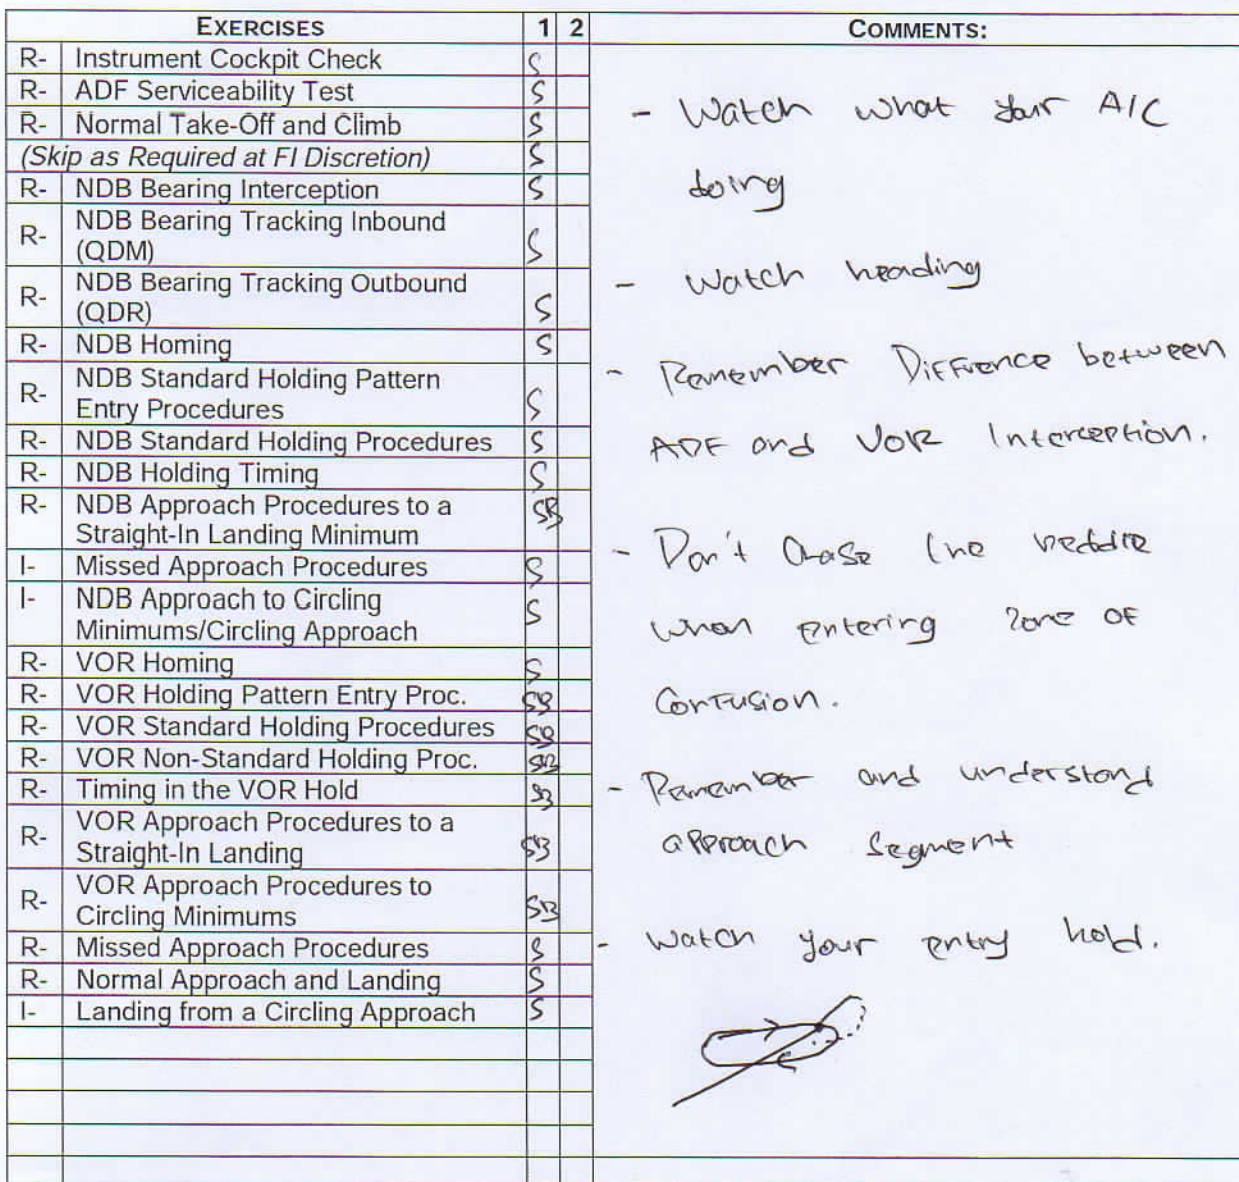 EXERCISES 1 2 COMMENTS:
R- Instrument Cockpit Check S
R- ADF Serviceability Test S
R- Normal Take-Off and Climb S
(Skip as Required at FI Discretion) S
R- NDB Bearing Interception S
R- NDB Bearing Tracking Inbound
(QDM) S
R- NDB Bearing Tracking Outbound
(QDR) S
R- NDB Homing S
R- NDB Standard Holding Pattern
Entry Procedures S
R- NDB Standard Holding Procedures S
R- NDB Holding Timing S
R- NDB Approach Procedures to a SB
Straight-In Landing Minimum
I- Missed Approach Procedures S
I- NDB Approach to Circling S
Minimums/Circling Approach
R- VOR Homing S
R- VOR Holding Pattern Entry Proc. SB
R- VOR Standard Holding Procedures SB
R- VOR Non-Standard Holding Proc. SB
R- Timing in the VOR Hold SB
R- VOR Approach Procedures to a
Straight-In Landing SB
R- VOR Approach Procedures to
Circling Minimums SB
R- Missed Approach Procedures S
R- Normal Approach and Landing S
I- Landing from a Circling Approach S
- Watch what your A/C
doing
- Watch heading
- Remember Diffrence between
ADF and VOR Interception.
- Don't Chase the
when entering zone of
Confusion.
- Remember and understand
approach Segment
- Watch your entry hold.